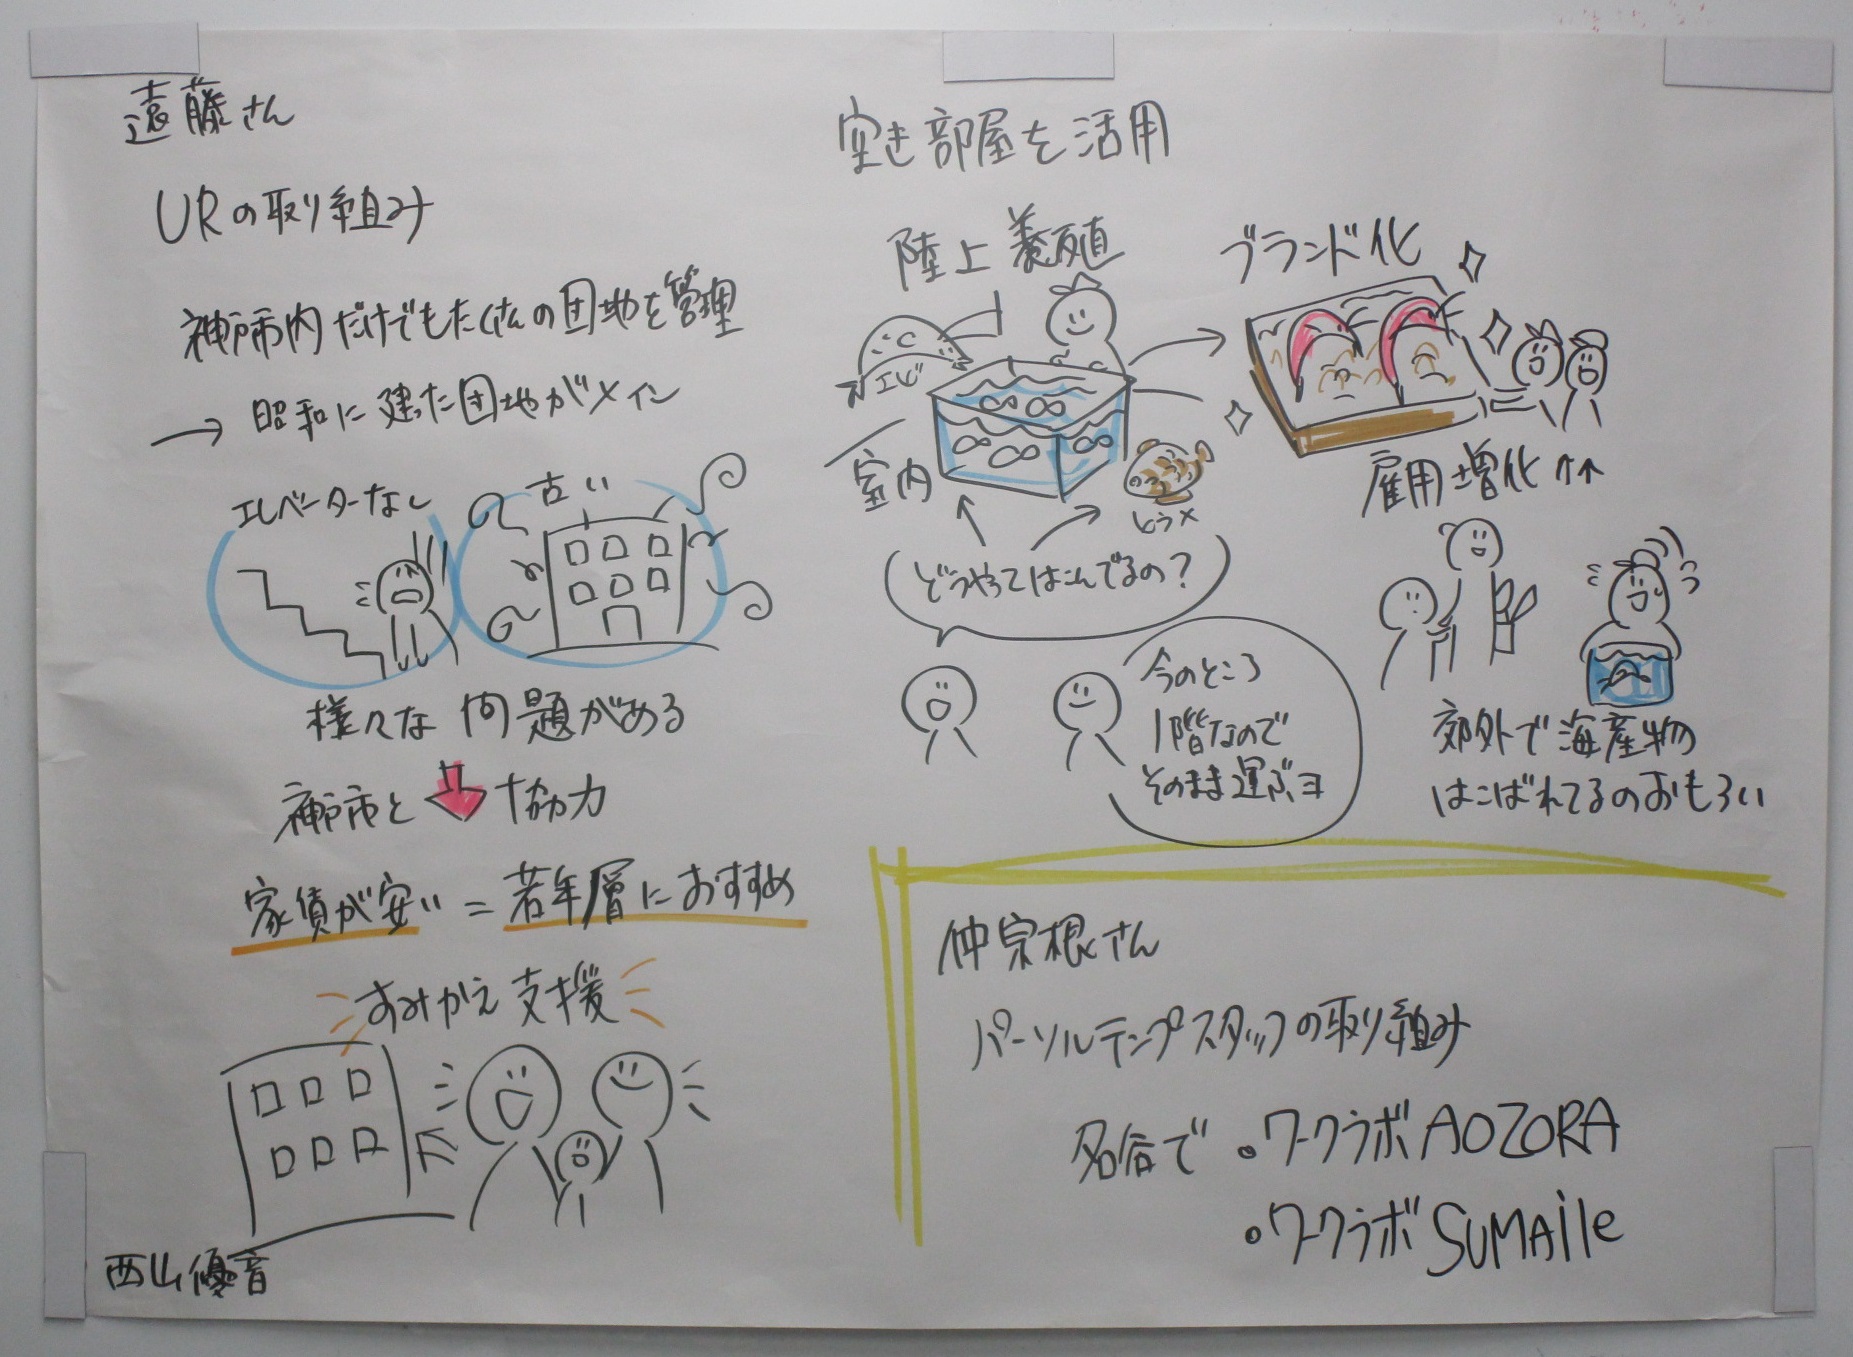 遠藤さん
URの取り組み
神戸市内だけでもたくさんの団地を管理
→ 昭和に建った団地がメイン
エレベーターなし
古い
様々な問題がある
神戸市と 協力
家債が安い = 若年層におすすめ
すみかえ支援
西山優音
空き部屋を活用
陸上養殖
エビ
室内
ブランド化
雇用増化↑↑
どうやってはこんでるの?
今のところ
1階なので
そのまま運ぶヨ
郊外で海産物
はこばれてるのおもろい
仲宗根さん
パーソルテンプスタッフの取り組み
名谷で ・ワークラボAOZORA
・ワークラボSUMAiLe